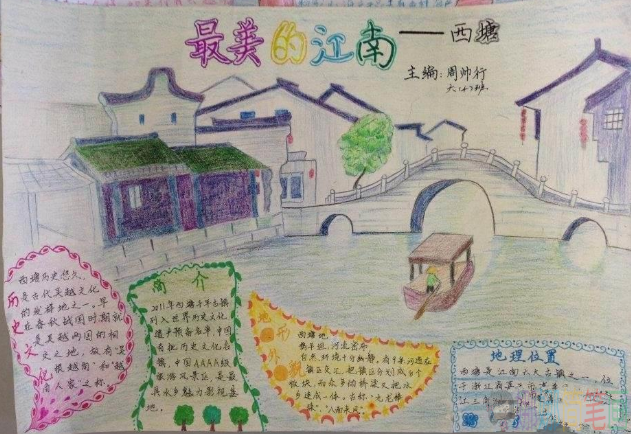 最美的江南——西塘
主编:周帅行
历史文化
西塘历史悠久,
是古代吴越文化
的发祥地之一。早
在春秋战国时期就
是吴越两国的相
交之地,故有"吴
根越角"和"越
角人家"之称
简介
2011年西塘千年古镇
列入世界历史文化
遗产预备名单,中国
首批历史文化名
镇,中国AAAA级
旅游风景区,是最
具水乡魅力影视基
地。
地形外貌
西塘地
势平坦,河流密布,
自然环境十分幽静。有9条河道在
镇区交汇,把镇区分划成8个
板块,而众多的桥梁又把水
乡连成一体。古称"九龙捧
珠","八面来风"
地理位置
西塘是江南六大古镇之一